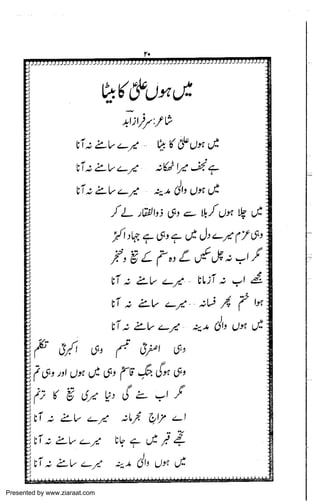 ۲۰
میں ہوں علیؑ کا بیٹا
شاعر: سرفراز ابد
میں ہوں علیؑ کا بیٹا - میرے سامنے نہ آنا
ہے نجف میرا ٹھکانہ - میرے سامنے نہ آنا
میں ہوں والیٔ مدینہ - میرے سامنے نہ آنا
میں چلا ہوں کربلا سے وہی ذوالفقار لے کر
وہی عزم میرے دل میں ہے وہی ہے جہاد اکبر
مگر اب نہ چل سکیں گے وہ ستم کے تیغ و خنجر
مجھے اب نہ آزمانا - میرے سامنے نہ آنا
ہوا ختم پھر فسانہ - میرے سامنے نہ آنا
میں ہوں والیٔ مدینہ میرے سامنے نہ آنا
وہی اصغریؑ تبسم وہی اکبریؑ تکلم
وہی ہوگی جنگِ قاسمؑ وہی میں ہوں اور وہی تم
مگر اب سنے گی دنیا میری تیغ کا ترنم
اے مزاجِ مجرمانہ میرے سامنے نہ آنا
تجھے قبر میں ہے جانا میرے سامنے نہ آنا
میں ہوں والیٔ مدینہ میرے سامنے نہ آنا
Presented by www.ziaraat.com